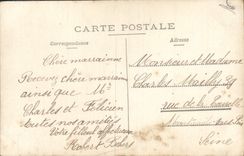 CARTE POSTALE
Correspondance
Adresse
Chère marrainne
Recevez chère marrainne
ainsi que Mr
Charles et Félicien
toutes nos amitiés
Votre filleul affectueux
Robert
Monsieur et Madame
Charles Mailly
rue de la
Seine